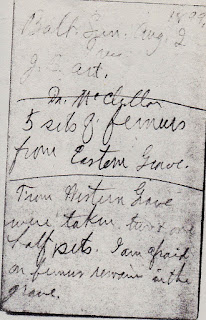 1899
Balt. Gen. Aug. 2
J. Z. art.
Dr. McClellan
5 sets of femurs
from Eastern Grave.
From Western Grave
were taken two & one
half sets. I am afraid
no femurs remain in the
grave.